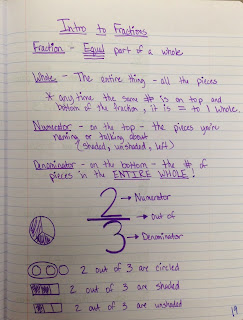 Intro to Fractions
Fraction - Equal part of a whole
Whole - The entire thing - all the pieces
* any time the same # is on top and
bottom of the fraction, it is = to 1 whole.
Numerator - on the top - the pieces you're
naming or talking about
(shaded, unshaded, left)
Denominator - on the bottom - the # of
pieces in the ENTIRE WHOLE!
2 → Numerator
→ out of
3 → Denominator
2 out of 3 are circled
2 out of 3 are shaded
2 out of 3 are unshaded
19